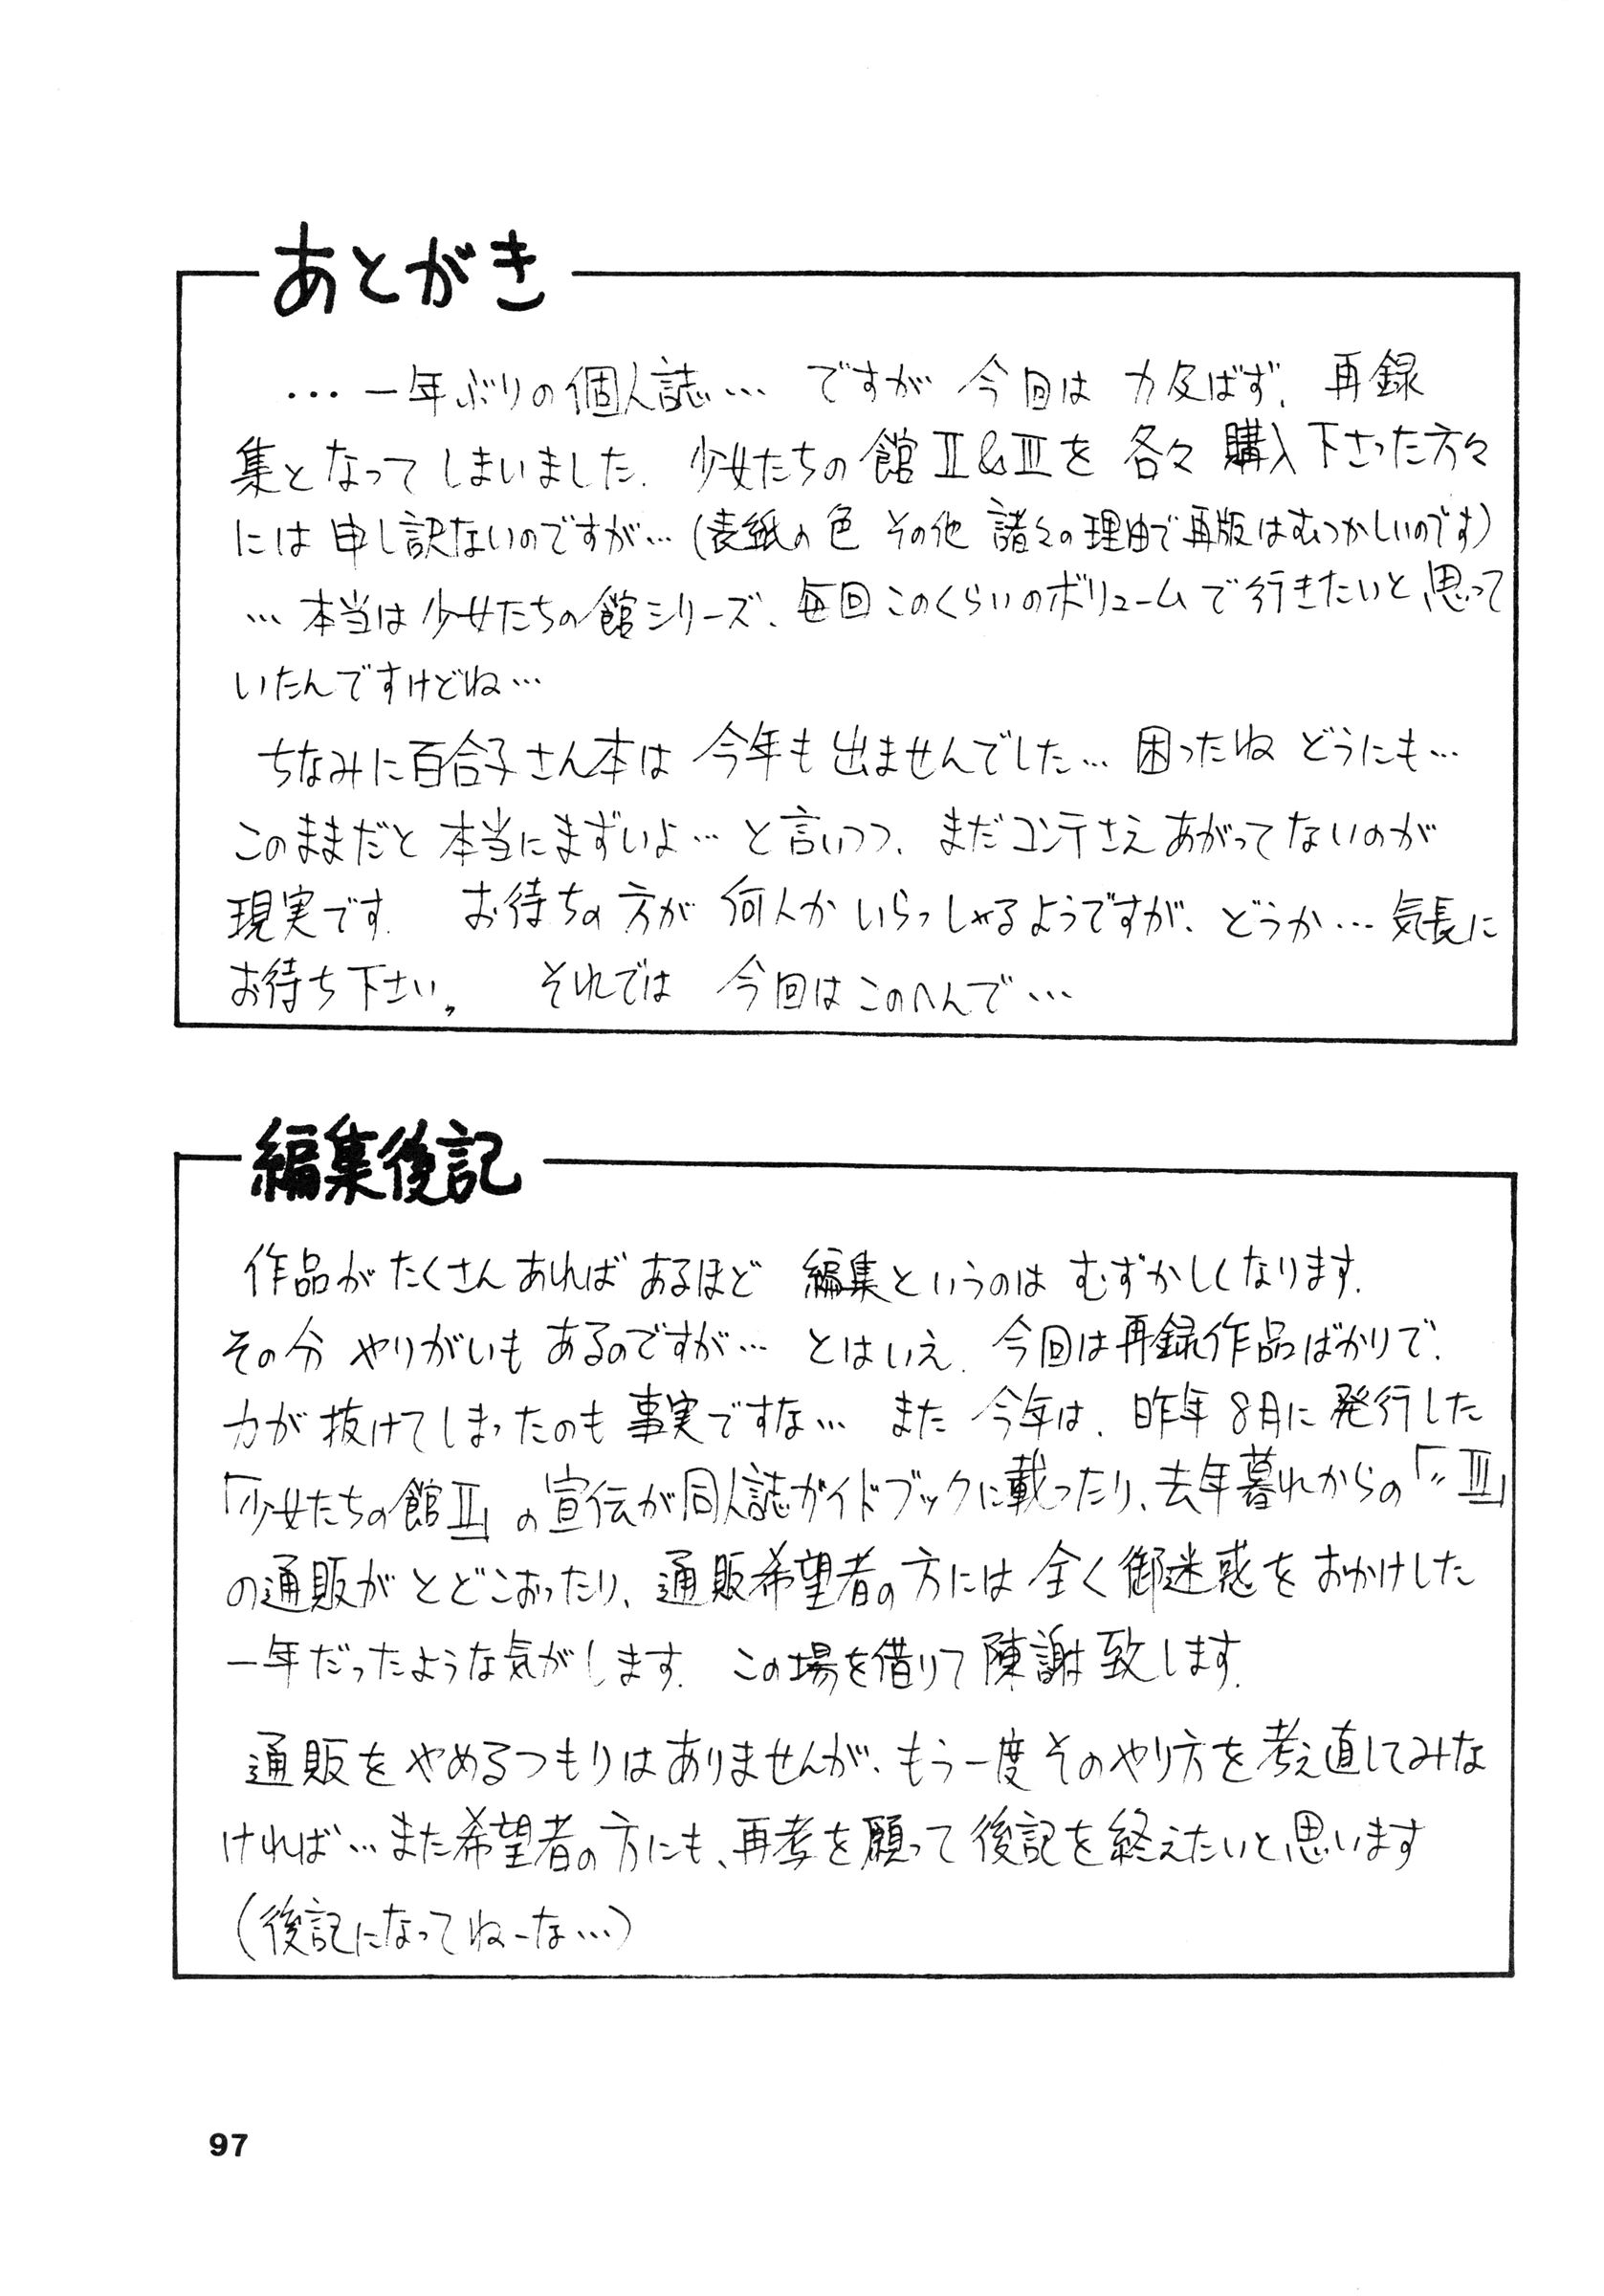 あとがき
…一年ぶりの個人誌… ですが 今回は 力及ばず、再録
集となってしまいました. 少女たちの館Ⅱ&Ⅲを 各々 購入下さった方々
には 申し訳ないのですが…(表紙の色 その他 諸々の理由で再版はむつかしいのです)
…本当は少女たちの館シリーズ、毎回このくらいのボリュームで行きたいと思って
いたんですけどね…
ちなみに百合子さん本は 今年も出ませんでした… 困ったね どうにも…
このままだと 本当にまずいよ… と言いつつ、まだコンテさえあがってないのが
現実です. お待ちの方が 何人かいらっしゃるようですが、どうか… 気長に
お待ち下さい。 それでは 今回はこのへんで…
編集後記
作品がたくさんあればあるほど 編集というのは むずかしくなります.
その分 やりがいも あるのですが… とはいえ. 今回は再録作品ばかりで、
力が抜けてしまったのも事実ですな… また 今年は、昨年8月に発行した
「少女たちの館Ⅱ」の宣伝が同人誌ガイドブックに載ったり、去年暮れからの「〃Ⅲ」
の通販がとどこおったり、通販希望者の方には全く御迷惑をおかけした
一年だったような気がします. この場を借りて陳謝致します.
通販をやめるつもりはありませんが、もう一度そのやり方を考え直してみな
ければ…また希望者の方にも、再考を願って後記を終えたいと思います
(後記になってねーな…)
97